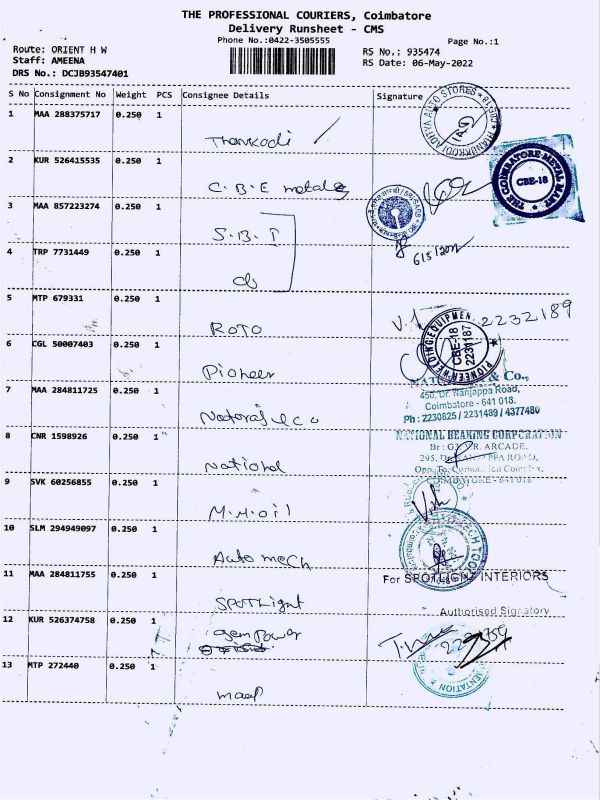 THE PROFESSIONAL COURIERS, Coimbatore
Delivery Runsheet - CMS
Phone No.:0422-3505555
Page No.:1
Route: ORIENT H W
RS No.: 935474
Staff: AMEENA
RS Date: 06-May-2022
DRS No.: DCJB93547401
S No Consignment No Weight PCS Consignee Details Signature
1 MAA 288375717 0.250 1
Thankodi
2 KUR 526415535 0.250 1
C.B.E metals
THE COIMBATORE METAL MART
CBE-18
3 MAA 857223274 0.250 1
S.B.I
4 TRP 7731449 0.250 1
do
6/5/2022
5 MTP 679331 0.250 1
ROTO
V.1 2232189
6 CGL 50007403 0.250 1
Pioneer
PIONEER WELDING EQUIPMEN
CBE-18
2231187
& Co.,
450, Dr. Nanjappa Road,
Coimbatore - 641 018.
Ph : 2230825 / 2231489 / 4377480
7 MAA 284811725 0.250 1
Nataraj & co
8 CNR 1598926 0.250 1
National
NATIONAL BEARING CORPORATION
ARCADE,
295,
COIMBATORE - 641 018
9 SVK 60256855 0.250 1
M.M.oil
10 SLM 294949097 0.250 1
Auto mech
11 MAA 284811755 0.250 1
SPOTLight
For SPOTLIGHT INTERIORS
Authorised Signatory
12 KUR 526374758 0.250 1
gempower
13 MTP 272440 0.250 1
maap